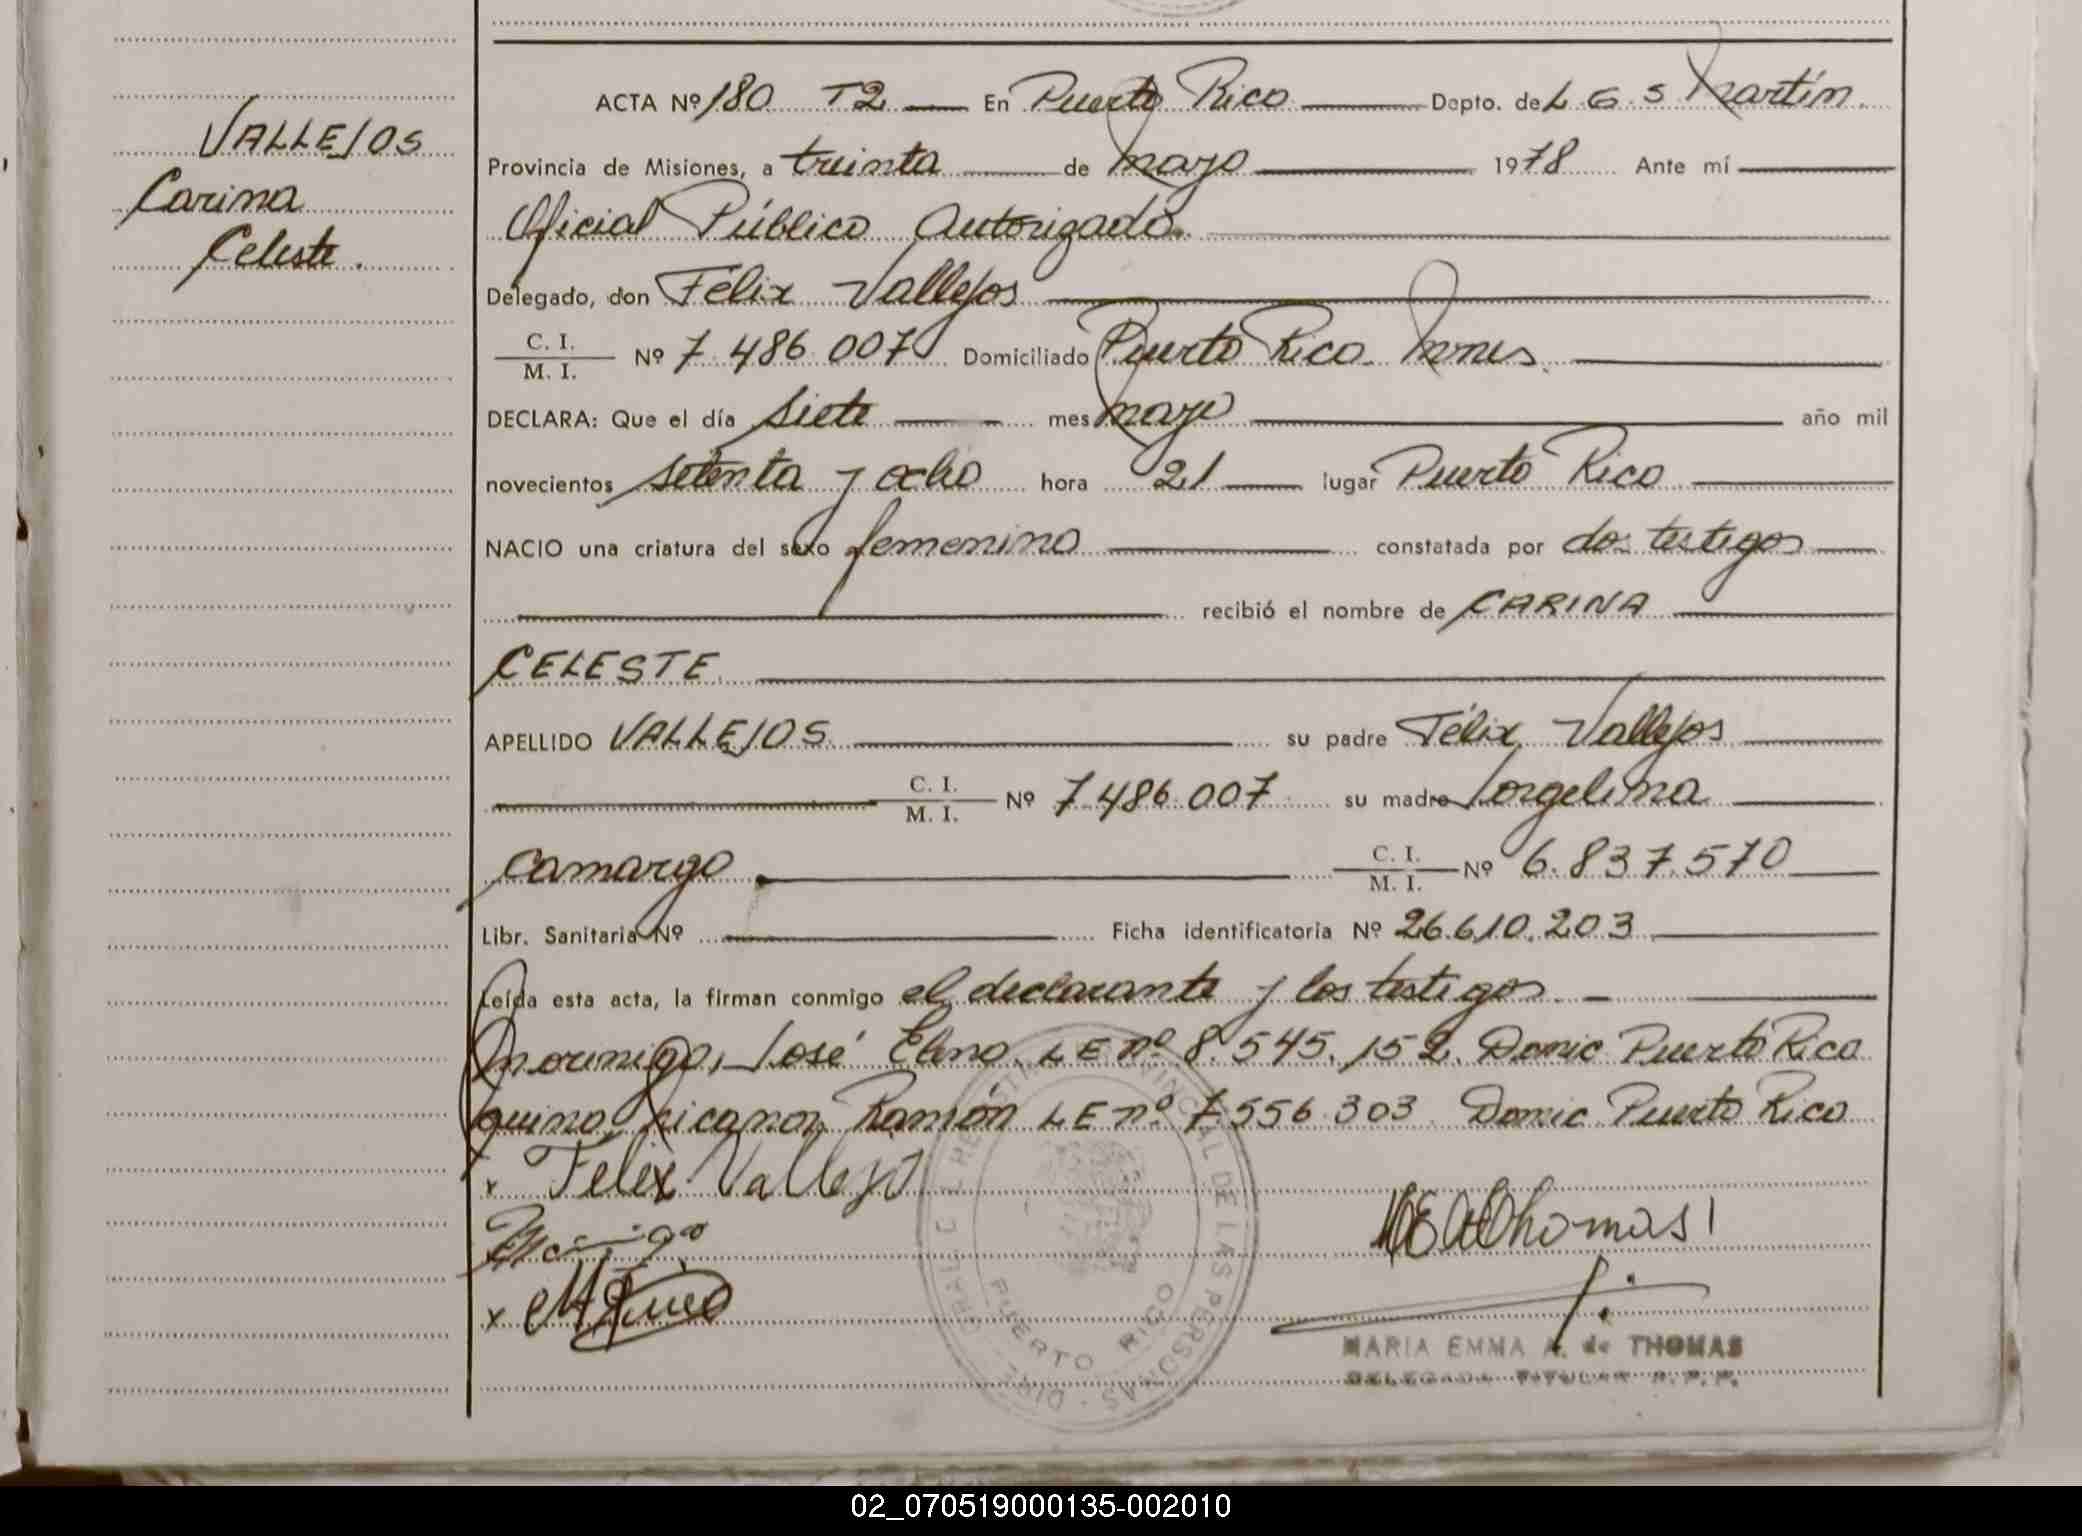 VALLEJOS
Carina
Celeste.
ACTA Nº 180 T2 En Puerto Rico Depto. de L G S Martín.
Provincia de Misiones, a treinta de mayo 1978 Ante mí
Oficial Público Autorizado.
Delegado, don Félix Vallejos
C. I.
M. I. Nº 7.486.007 Domiciliado Puerto Rico Mnes.
DECLARA: Que el día siete mes mayo año mil
novecientos setenta y ocho hora 21 lugar Puerto Rico
NACIO una criatura del sexo femenino constatada por dos testigos
recibió el nombre de CARINA
CELESTE
APELLIDO VALLEJOS su padre Félix Vallejos
C. I.
M. I. Nº 7.486.007 su madre Jorgelina
Camargo C. I.
M. I. Nº 6.837.570
Libr. Sanitaria Nº Ficha identificatoria Nº 26.610.203
Leída esta acta, la firman conmigo el declarante y los testigos
Morinigo, José Eleno LE nº 8.545.152 Domic Puerto Rico
Quino Nicanor Ramón LE nº 7.556.303 Domic Puerto Rico
x Felix Vallejo
MEAThomas
x
MARIA EMMA A. de THOMAS
DELEGADA TITULAR R.P.P.
DIRE GRAL D L REGISTR PROVINCIAL DE LAS PERSONAS
PUERTO RICO
02_070519000135-002010